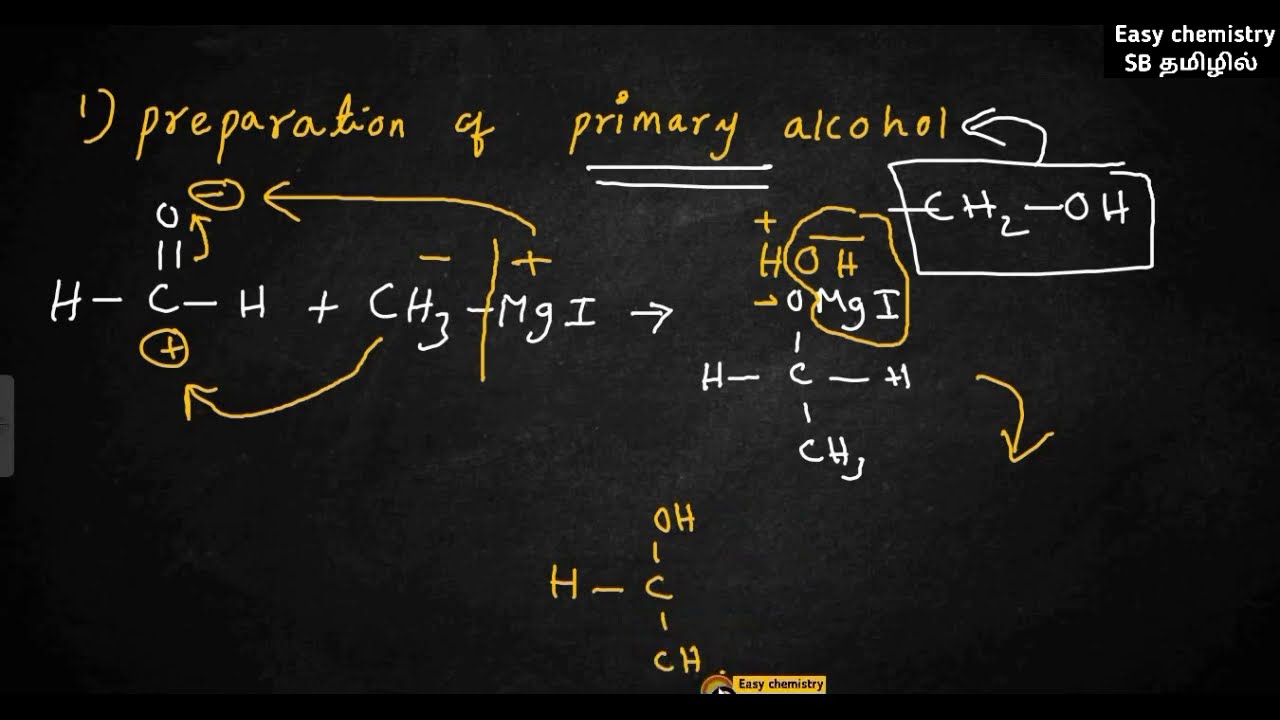 Easy chemistry
SB தமிழில்
1) preparation of primary alcohol
-CH2-OH
O -
||
H - C - H + CH3 - MgI →
+
- +
+ -
H OH
- O MgI
|
H - C - H
|
CH3
OH
|
H - C
|
CH
Easy chemistry